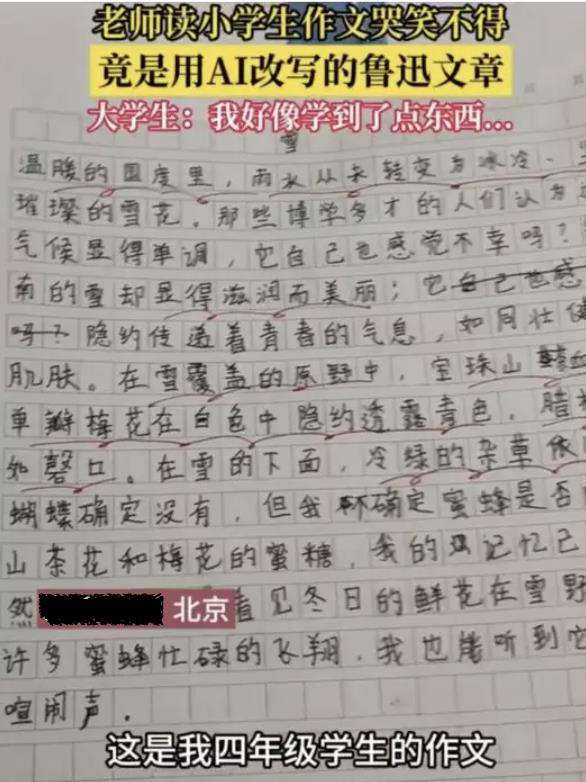 老师读小学生作文哭笑不得
竟是用AI改写的鲁迅文章
大学生：我好像学到了点东西...
雪
温暖的国度里，雨水从未转变为冰冷、
璀璨的雪花。那些博学多才的人们认为
气候显得单调，它自己也感觉不幸吗？
南的雪却显得滋润而美丽；它自己也感
吗？隐约传递着青春的气息，如同壮健
肌肤。在雪覆盖的原野中，宝珠山
单瓣梅花在白色中隐约透露青色，腊
如磬口。在雪的下面，冷绿的杂草依
蝴蝶确定没有，但我不确定蜜蜂是否
山茶花和梅花的蜜糖，我的记忆已
然
北京
看见冬日的鲜花在雪野
许多蜜蜂忙碌的飞翔，我也能听到它
喧闹声。
这是我四年级学生的作文